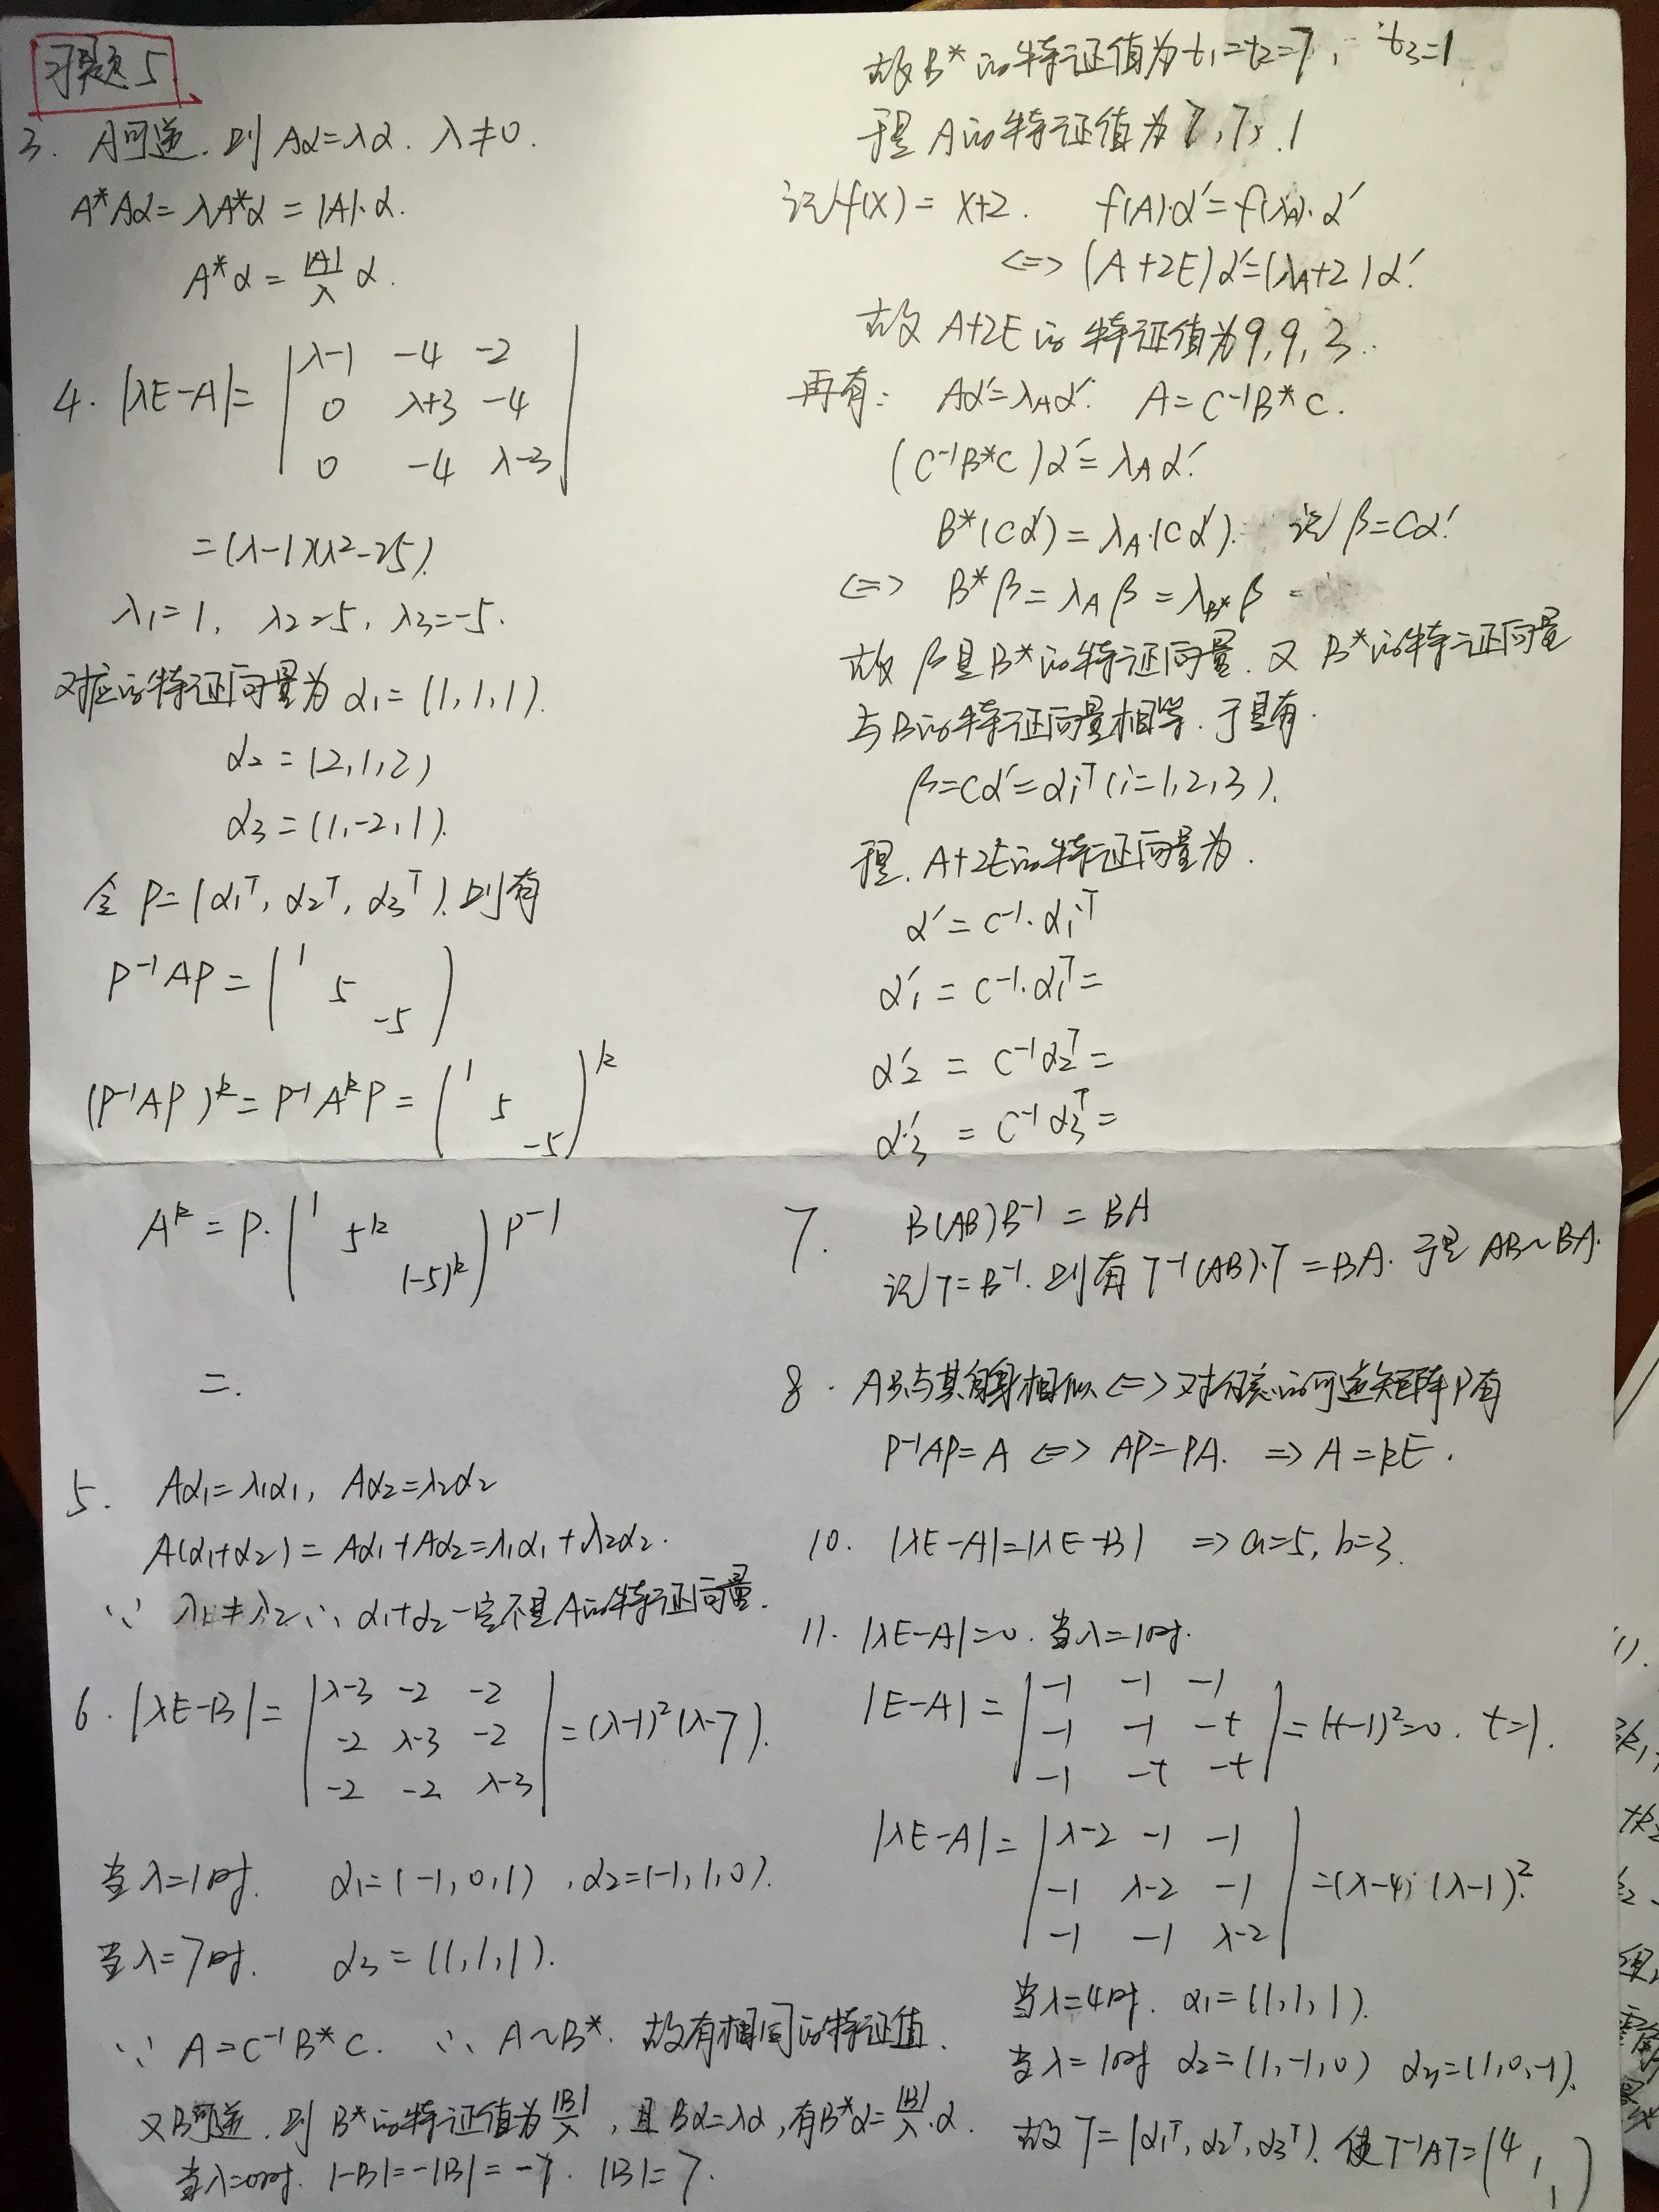 习题5
3. A可逆. 则 Aα=λα. λ≠0.
A*Aα=λA*α=|A|·α.
A*α=|A|/λ α.
4. |λE-A|= | λ-1 -4 -2 |
| 0 λ+3 -4 |
| 0 -4 λ-3 |
=(λ-1)(λ²-25).
λ1=1, λ2=5, λ3=-5.
对应的特征向量为 α1=(1,1,1).
α2=(2,1,2)
α3=(1,-2,1).
令 P=(α1ᵀ, α2ᵀ, α3ᵀ). 则有
P⁻¹AP=( 1 5 -5 )
(P⁻¹AP)ᵏ=P⁻¹AᵏP=( 1 5 -5 )ᵏ
Aᵏ=P·( 1 5ᵏ (-5)ᵏ )P⁻¹
=.
5. Aα1=λ1α1, Aα2=λ2α2
A(α1+α2)=Aα1+Aα2=λ1α1+λ2α2.
∵ λ1≠λ2 ∴ α1+α2一定不是A的特征向量.
6. |λE-B|= | λ-3 -2 -2 |
| -2 λ-3 -2 | =(λ-1)²(λ-7).
| -2 -2 λ-3 |
当λ=1时. α1=(-1,0,1), α2=(-1,1,0).
当λ=7时. α3=(1,1,1).
∵ A=C⁻¹B*C. ∴ A~B*. 故有相同的特征值.
又B可逆. 则 B*的特征值为|B|/λ, 且Bα=λα, 有B*α=|B|/λ·α.
当λ=0时. |-B|=-|B|=-7. |B|=7.
故B*的特征值为t1=t2=7, t3=1
于是A的特征值为7,7,1
记f(x)=x+2. f(A)·α′=f(λA)·α′
<=> (A+2E)α′=(λA+2)α′.
故 A+2E的特征值为9,9,3.
再有: Aα′=λAα′. A=C⁻¹B*C.
(C⁻¹B*C)α′=λAα′.
B*(Cα′)=λA·(Cα′). 记β=Cα′.
<=> B*β=λAβ=λB*β
故β是B*的特征向量. 又B*的特征向量
与B的特征向量相等. 于是有.
β=Cα′=αiᵀ(i=1,2,3).
于是. A+2E的特征向量为.
α′=C⁻¹·αiᵀ
α′1=C⁻¹·α1ᵀ=
α′2=C⁻¹α2ᵀ=
α′3=C⁻¹α3ᵀ=
7. B(AB)B⁻¹=BA
记T=B⁻¹. 则有T⁻¹(AB)·T=BA. 于是 AB~BA.
8. A只与其自身相似<=>对任意的可逆矩阵P有
P⁻¹AP=A <=> AP=PA. => A=kE.
10. |λE-A|=|λE-B| => a=5, b=3.
11. |λE-A|=0. 当λ=1时.
|E-A|= | -1 -1 -1 |
| -1 -1 -t | =(t-1)²=0. t=1.
| -1 -t -t |
|λE-A|= | λ-2 -1 -1 |
| -1 λ-2 -1 | =(λ-4)(λ-1)².
| -1 -1 λ-2 |
当λ=4时. α1=(1,1,1).
当λ=1时 α2=(1,-1,0) α3=(1,0,-1).
故T=(α1ᵀ, α2ᵀ, α3ᵀ). 使T⁻¹AT=( 4 1 1 )